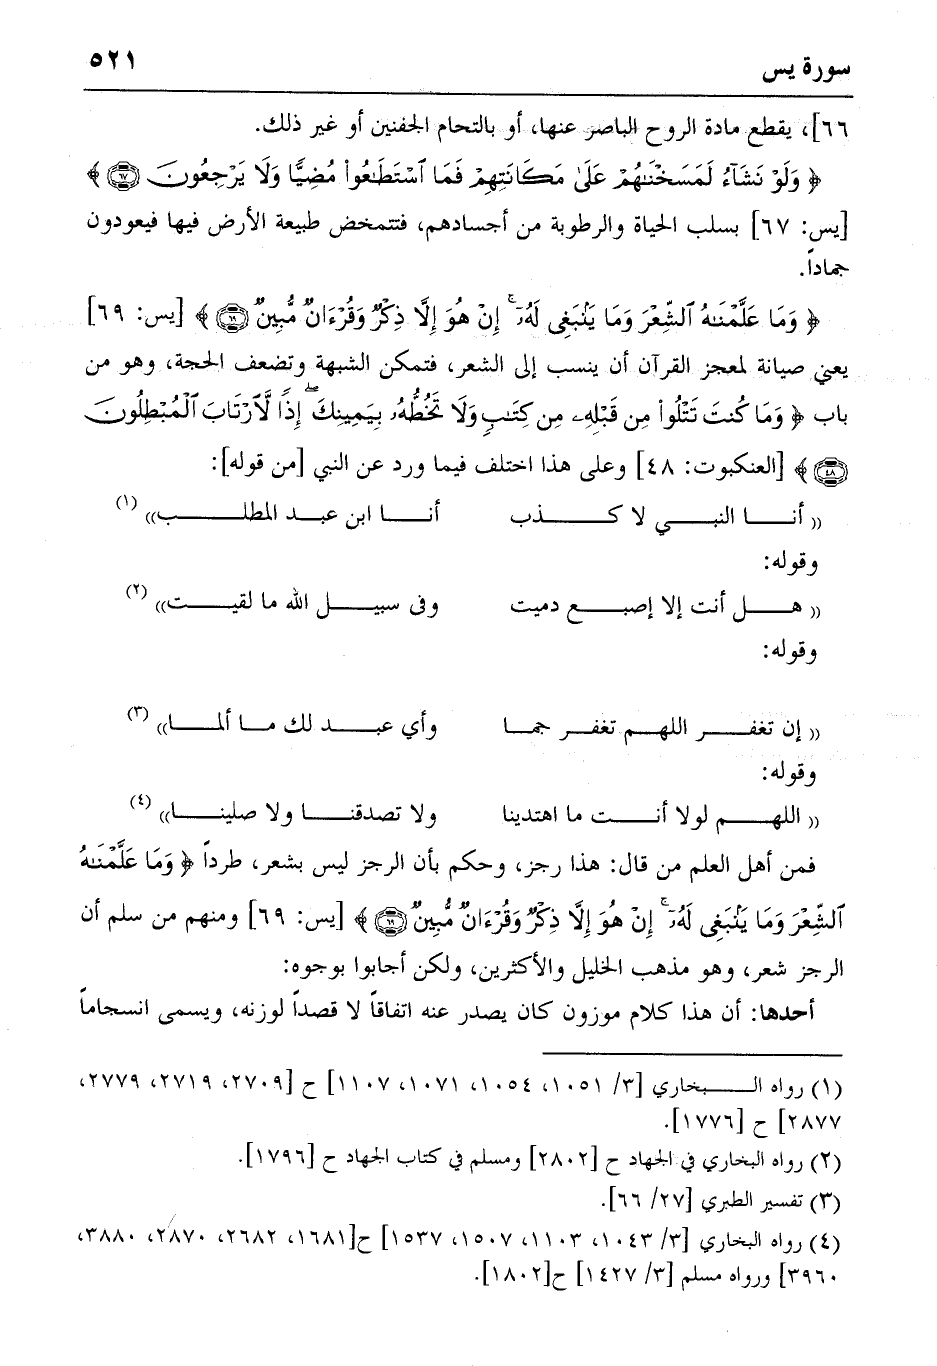 سورة يس
٥٢١
٦٦]، يقطع مادة الروح الباصر عنها، أو بالتحام الجفنين أو غير ذلك.
﴿ وَلَوْ نَشَآءُ لَمَسَخْنَٰهُمْ عَلَىٰ مَكَانَتِهِمْ فَمَا ٱسْتَطَٰعُوا۟ مُضِيًّا وَلَا يَرْجِعُونَ ۝٦٧ ﴾
[يس: ٦٧] بسلب الحياة والرطوبة من أجسادهم، فتتمخض طبيعة الأرض فيها فيعودون
جماداً.
﴿ وَمَا عَلَّمْنَٰهُ ٱلشِّعْرَ وَمَا يَنۢبَغِى لَهُۥٓ ۚ إِنْ هُوَ إِلَّا ذِكْرٌ وَقُرْءَانٌ مُّبِينٌ ۝٦٩ ﴾ [يس: ٦٩]
يعني صيانة لمعجز القرآن أن ينسب إلى الشعر، فتمكن الشبهة وتضعف الحجة، وهو من
باب ﴿ وَمَا كُنتَ تَتْلُوا۟ مِن قَبْلِهِۦ مِن كِتَٰبٍ وَلَا تَخُطُّهُۥ بِيَمِينِكَ ۖ إِذًا لَّٱرْتَابَ ٱلْمُبْطِلُونَ
۝٤٨ ﴾ [العنكبوت: ٤٨] وعلى هذا اختلف فيما ورد عن النبي [من قوله]:
(( أنـــا النبـــي لا كـــذب أنـــا ابن عبـــد المطلـــب)) (١)
وقوله:
(( هـــل أنت إلا إصبـــع دميت وفى سبيـــل الله ما لقيـــت)) (٢)
وقوله:
(( إن تغفـــر اللهـــم تغفـــر جمـــا وأي عبـــد لك مـــا ألمـــا)) (٣)
وقوله:
(( اللهـــم لولا أنـــت ما اهتدينا ولا تصدقنـــا ولا صلينـــا)) (٤)
فمن أهل العلم من قال: هذا رجز، وحكم بأن الرجز ليس بشعر، طرداً ﴿ وَمَا عَلَّمْنَٰهُ
ٱلشِّعْرَ وَمَا يَنۢبَغِى لَهُۥٓ ۚ إِنْ هُوَ إِلَّا ذِكْرٌ وَقُرْءَانٌ مُّبِينٌ ۝٦٩ ﴾ [يس: ٦٩] ومنهم من سلم أن
الرجز شعر، وهو مذهب الخليل والأكثرين، ولكن أجابوا بوجوه:
أحدها: أن هذا كلام موزون كان يصدر عنه اتفاقاً لا قصداً لوزنه، ويسمى انسجاماً
(١) رواه الـــبخاري [٣/ ١٠٥١، ١٠٥٤، ١٠٧١، ١١٠٧] ح [٢٧٠٩، ٢٧١٩، ٢٧٧٩،
٢٨٧٧] ح [١٧٧٦].
(٢) رواه البخاري في الجهاد ح [٢٨٠٢] ومسلم في كتاب الجهاد ح [١٧٩٦].
(٣) تفسير الطبري [٢٧/ ٦٦].
(٤) رواه البخاري [٣/ ١٠٤٣، ١١٠٣، ١٥٠٧، ١٥٣٧] ح[١٦٨١، ٢٦٨٢، ٢٨٧٠، ٣٨٨٠،
٣٩٦٠] ورواه مسلم [٣/ ١٤٢٧] ح[١٨٠٢].